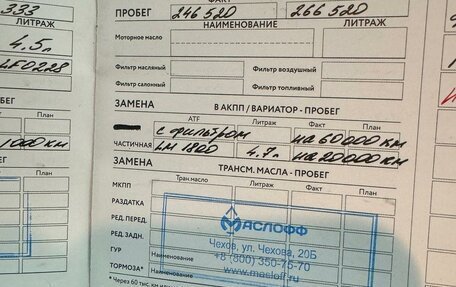 333
ЛИТРАЖ
4.5л
ФАКТ
ПРОБЕГ 246 520 266 520
НАИМЕНОВАНИЕ ЛИТРАЖ
Моторное масло
Фильтр масляный Фильтр воздушный
Фильтр салонный Фильтр топливный
ПРОБЕГ
План
1000 км
ЗАМЕНА В АКПП / ВАРИАТОР - ПРОБЕГ
ATF Литраж Факт План
с фильтром на 60000 км
ЧАСТИЧНАЯ LM 1800 4.7л на 20000 км
ЗАМЕНА ТРАНСМ. МАСЛА - ПРОБЕГ
Тран.масло Литраж Факт План
МКПП
РАЗДАТКА
РЕД. ПЕРЕД.
РЕД. ЗАДН.
ГУР Наименование
ТОРМОЗА* Наименование
МАСЛОФФ
Чехов, ул. Чехова, 20Б
+8 (800) 350-75-70
www.masloff.ru
* Через 60 тыс. км
ПРОБЕГ
План